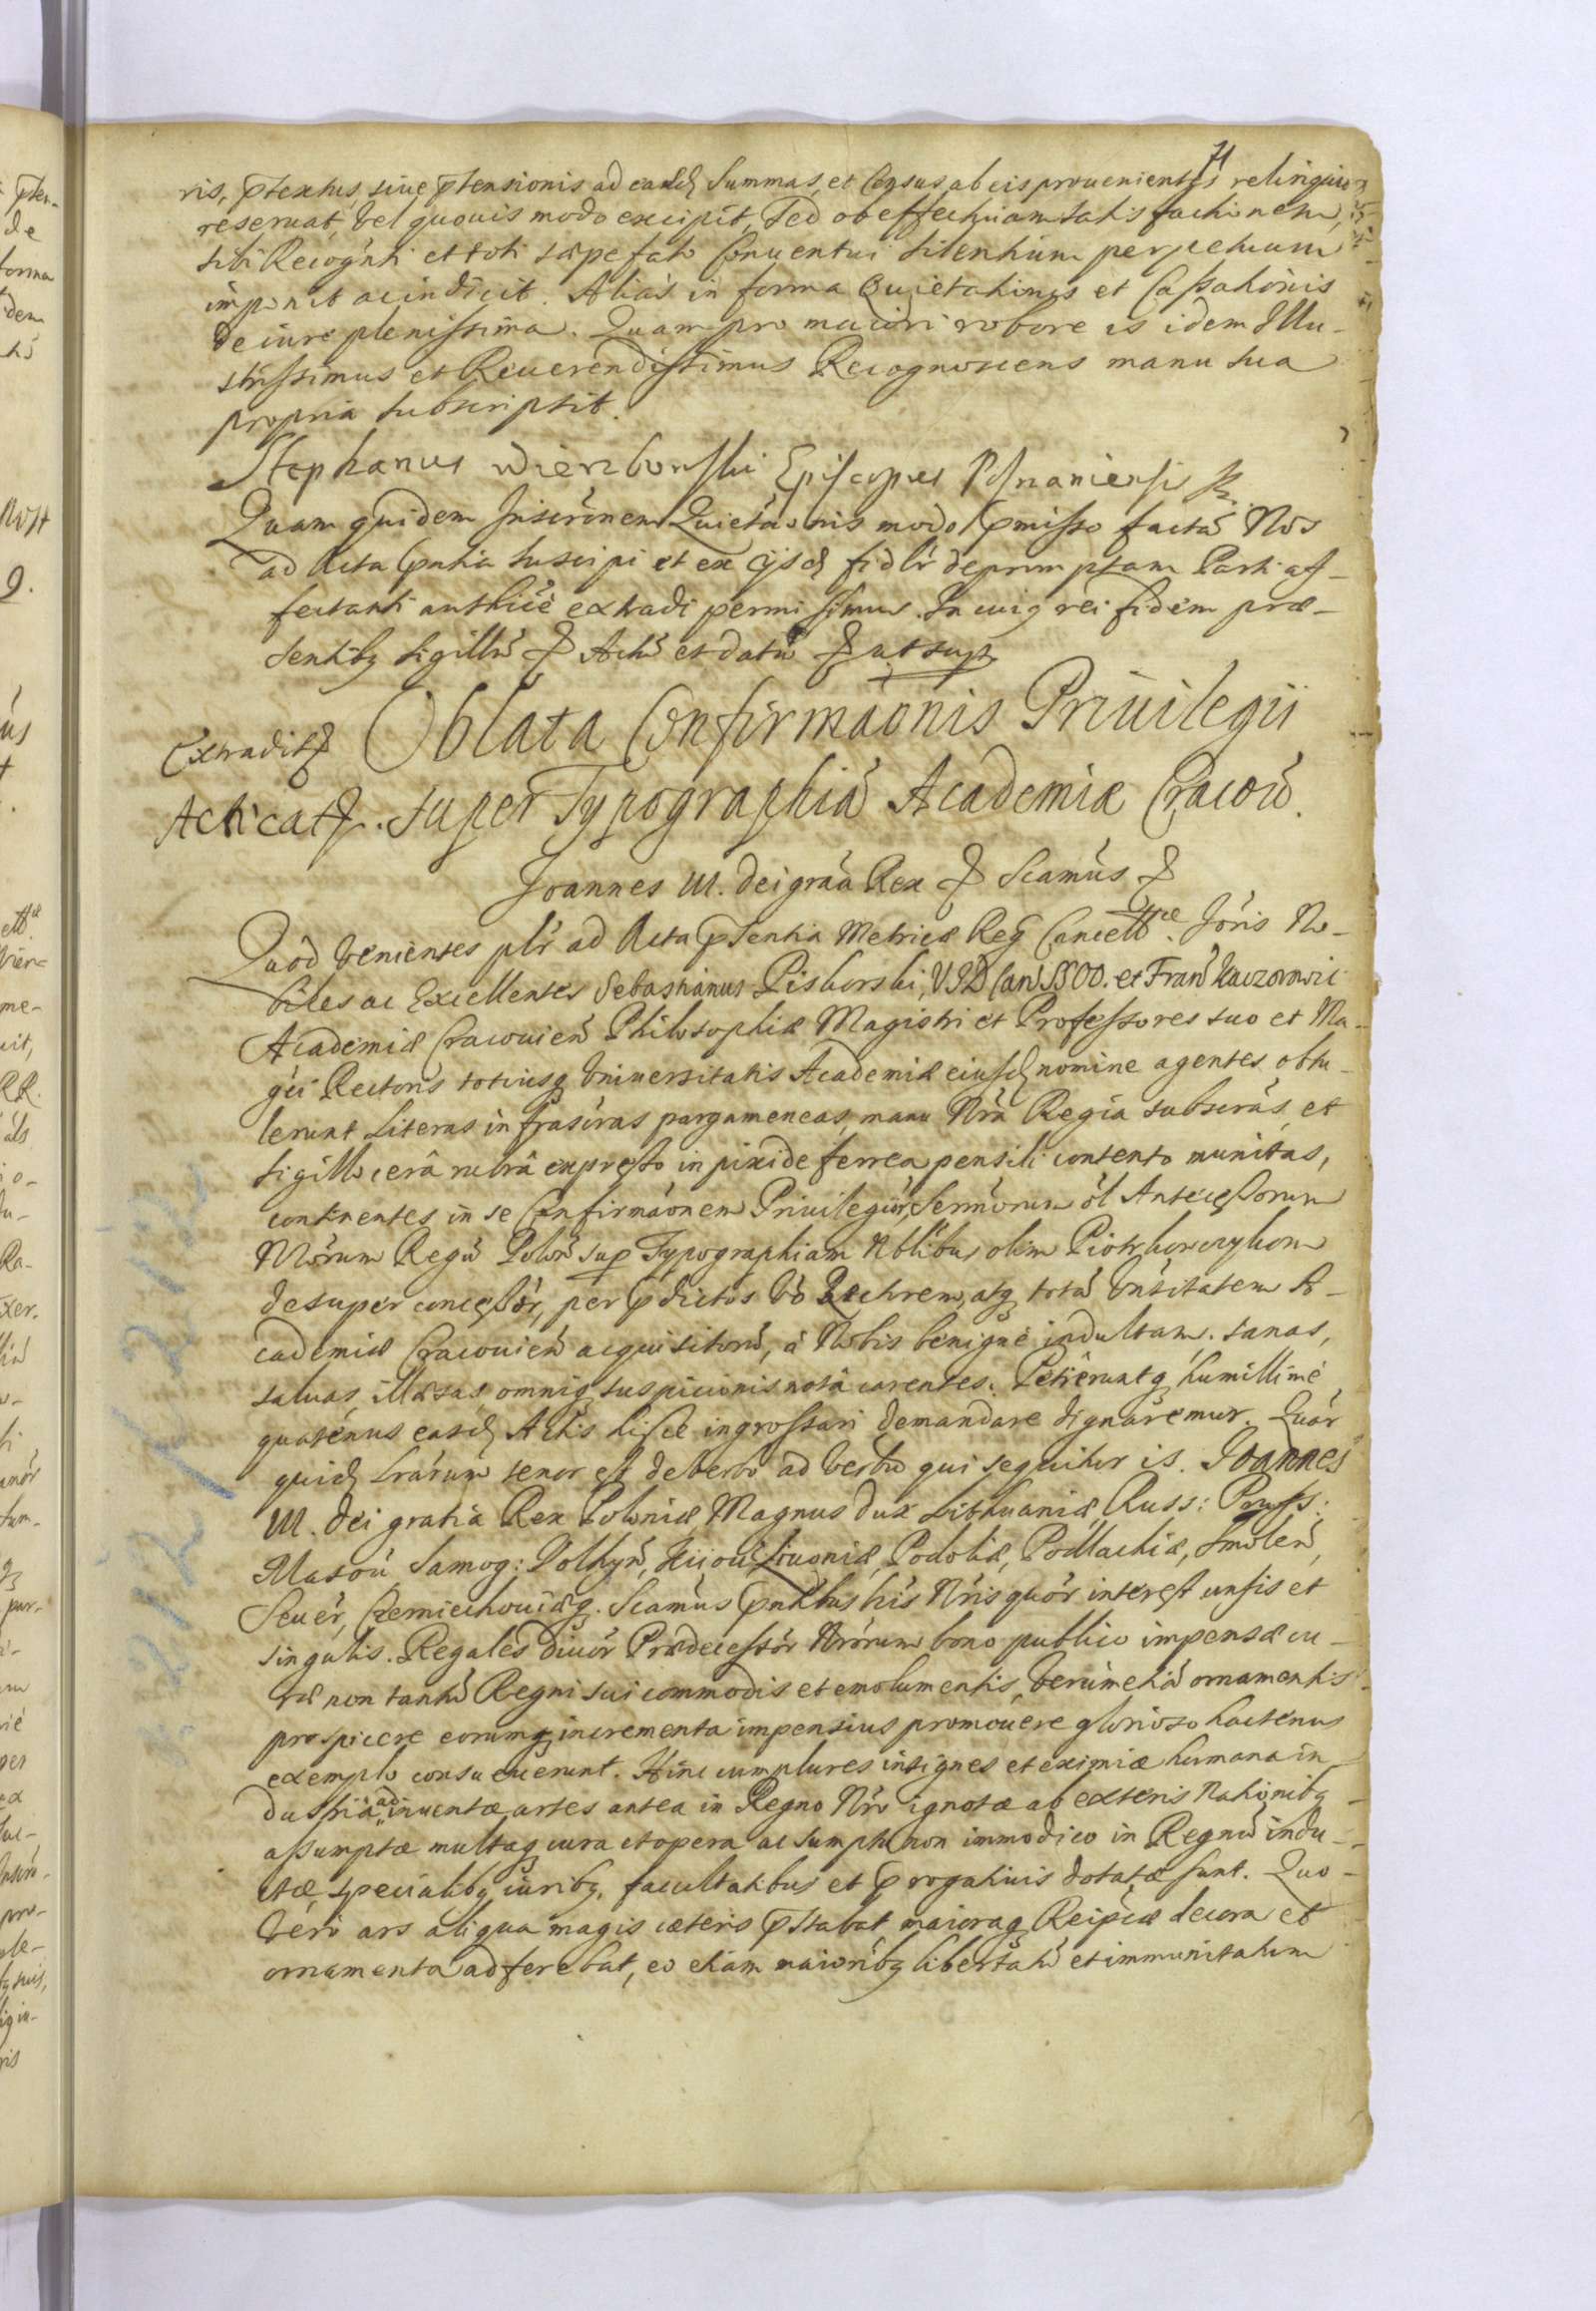 71
ris, prtextus, siue prtensionis ad easdem Summas, et Census ab eis prouenientes relinquit
reseruat, vel quouis modo excipit, Sed ob effectiuam satisfactionem,
sibi Recognti et toti sæpefato Conuentui silentium perpetuum
imponit ac indicit. Alias in forma Quietationis et Cassationis
de iure plenissima. Quam pro maiori robore is idem Illu-
strissimus et Reuerendissimus Recognoscens manu sua
propria subscripsit.
Stephanus Wierzbowski Episcopus Posnaniensis
Quam quidem Inscrōnem Quietāonis modo pmisso factā Nos
ad Acta pntia suscipi et ex ijsdem fidlr depromptam Parti af-
fectanti authicē extradi permisimus. In cuiq rei fidem præ-
sentibq sigillū Actū et datū ut supr
Extradit Oblata Confirmaōnis Priuilegii
Acticat. super Typographiā Academiæ Cracov̄.
Joannes III. Dei grāa Rex Scamūs
Quod venientes plr ad Acta psentia Metricæ Reg Cancellræ Jōris No-
biles ac Excellentes Sebastianus Piskorski, VJD Can SSOO. et Fran Kaczorowic
Academiæ Cracouien Philosophiæ Magistri et Professores suo et Ma-
gci Rectoris totiusq Vniuersitatis Academiæ eiusdem nomine agentes obtu-
lerunt Literas infrascras pargameneas, manu Nrā Regia subscras, et
sigillo cerâ rubrâ expresso in pixide ferrea pensili contento munitas,
continentes in se Confirmāonem Priuilegiōr, Sermōrum ol Antecessorum
Nrōrum Regū Polon sup Typographiam Nblibus olim Piotrkowczykom
desuper concessōr, per pdictos vō Rectorem, atq totā Vnsitatem A-
cademiæ Cracouien acquisitorū, à Nobis benignè indultam, sanas,
saluas, illæsas, omniq suspicionis nota carentes. Petieruntq humillimè
quatenus easdem Actis hisce ingrossari demandare dignaremur. Quār
quidem Lrārum tenor est de verbo ad verbū qui sequitur is. Joannes
III. Dei gratia Rex Poloniæ, Magnus Dux Lithuaniæ, Russ: Pruss:
Masou Samog: Volhyn, Kijou Liuoniæ, Podoliæ, Podlachiæ, Smolen,
Seuer, Czerniechouiæq. Scamūs pntibus his Nris quōr interest unsis et
singulis. Regales Diuor Prædecessōr Nrōrum bono publico impensæ cu-
ræ non tantū Regni sui commodis et emolumentis, verùm etiā ornamentis
prospicere eorumq incrementa impensius promouere glorioso hactenus
exemplo consueuerunt. Hinc cum plures insignes et eximiæ humana in-
dustriâ adinuentæ artes antea in Regno Nro ignotæ ab exteris Nationibq
assumptæ multaq cura et opera ac sumptu non immodico in Regnū indu-
ctæ, specialibq iuribq, facultatibus et prrogatiuis dotatæ sunt. Quo
vero ars aliqua magis cæteris pstabat maioraq Reipcæ decora et
ornamenta adferebat, eo etiam maioribq libertatū et immunitatum